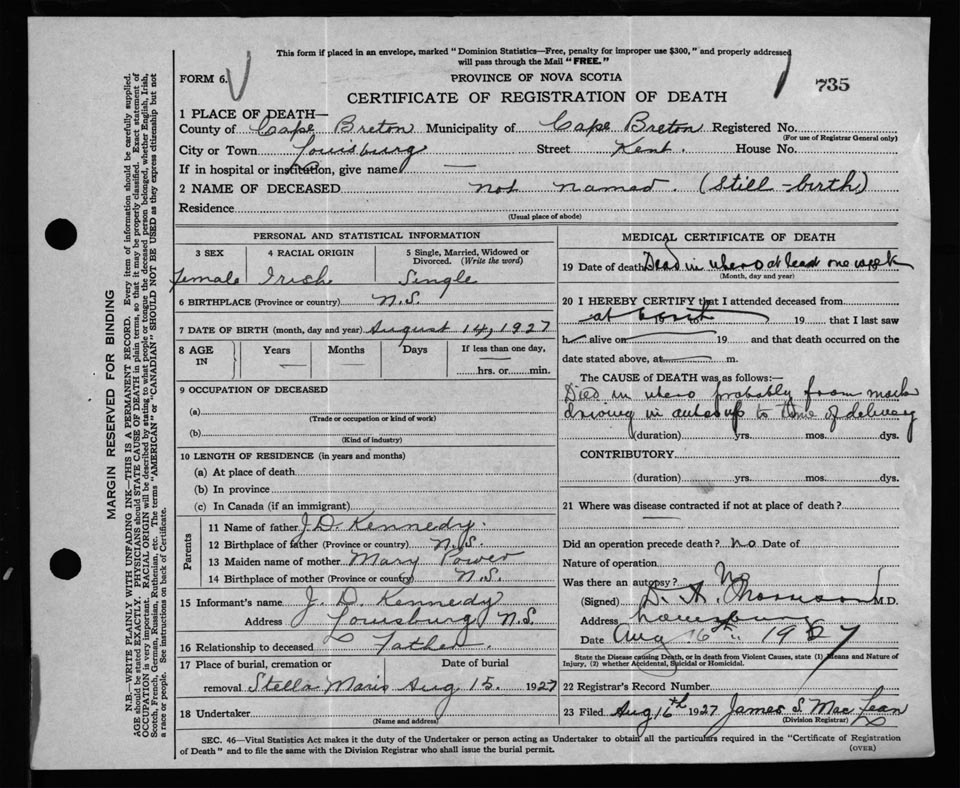 This form if placed in an envelope, marked "Dominion Statistics—Free, penalty for improper use $300," and properly addressed
will pass through the Mail "FREE."
FORM 6.
PROVINCE OF NOVA SCOTIA
735
CERTIFICATE OF REGISTRATION OF DEATH
1 PLACE OF DEATH—
County of Cape Breton Municipality of Cape Breton Registered No.
(For use of Registrar General only)
City or Town Louisburg Street Kent. House No.
If in hospital or institution, give name —
2 NAME OF DECEASED not named. (Still-birth)
Residence
(Usual place of abode)
PERSONAL AND STATISTICAL INFORMATION
3 SEX 4 RACIAL ORIGIN 5 Single, Married, Widowed or
Divorced. (Write the word)
female Irish Single
6 BIRTHPLACE (Province or country) N.S.
7 DATE OF BIRTH (month, day and year) August 14, 1927
8 AGE IN Years Months Days If less than one day,
— — — hrs. or min.
9 OCCUPATION OF DECEASED
(a)
(Trade or occupation or kind of work)
(b)
(Kind of industry)
10 LENGTH OF RESIDENCE (in years and months)
(a) At place of death
(b) In province
(c) In Canada (if an immigrant)
Parents
11 Name of father J.D. Kennedy.
12 Birthplace of father (Province or country) N.S.
13 Maiden name of mother Mary Power
14 Birthplace of mother (Province or country) N.S.
15 Informant's name J. D. Kennedy
Address Louisburg N.S.
16 Relationship to deceased Father.
17 Place of burial, cremation or Date of burial
removal Stella Maris Aug 15. 1927
18 Undertaker
(Name and address)
MEDICAL CERTIFICATE OF DEATH
19 Date of death Dead in utero at least one week
(Month, day and year)
20 I HEREBY CERTIFY that I attended deceased from
at 19 to 19 that I last saw
h alive on 19 and that death occurred on the
date stated above, at m.
The CAUSE OF DEATH was as follows:—
Died in utero probably from
driving in up to time of delivery
(duration) yrs. mos. dys.
CONTRIBUTORY
(duration) yrs. mos. dys.
21 Where was disease contracted if not at place of death?
—
Did an operation precede death? no Date of
Nature of operation
Was there an autopsy? No
(Signed) D. A. M.D.
Address Louisburg
Date Aug 16th 1927
State the Disease causing Death, or in death from Violent Causes, state (1) Means and Nature of
Injury, (2) whether Accidental, Suicidal or Homicidal.
22 Registrar's Record Number
23 Filed Aug 16th 1927 James S. MacLean
(Division Registrar)
SEC. 46—Vital Statistics Act makes it the duty of the Undertaker or person acting as Undertaker to obtain all the particulars required in the "Certificate of Registration
of Death" and to file the same with the Division Registrar who shall issue the burial permit.
(OVER)
MARGIN RESERVED FOR BINDING
N.B.—WRITE PLAINLY WITH UNFADING INK—THIS IS A PERMANENT RECORD. Every item of information should be carefully supplied.
AGE should be stated EXACTLY. PHYSICIANS should STATE CAUSE OF DEATH in plain terms, so that it may be properly classified. Exact statement of
OCCUPATION is very important. RACIAL ORIGIN will be described by stating to what people or tongue the deceased person belonged, whether English, Irish,
Scotch, French, German, Russian, Ruthenian, etc. The terms "AMERICAN" or "CANADIAN" SHOULD NOT BE USED as they express citizenship but not
a race or people. See instructions on back of Certificate.